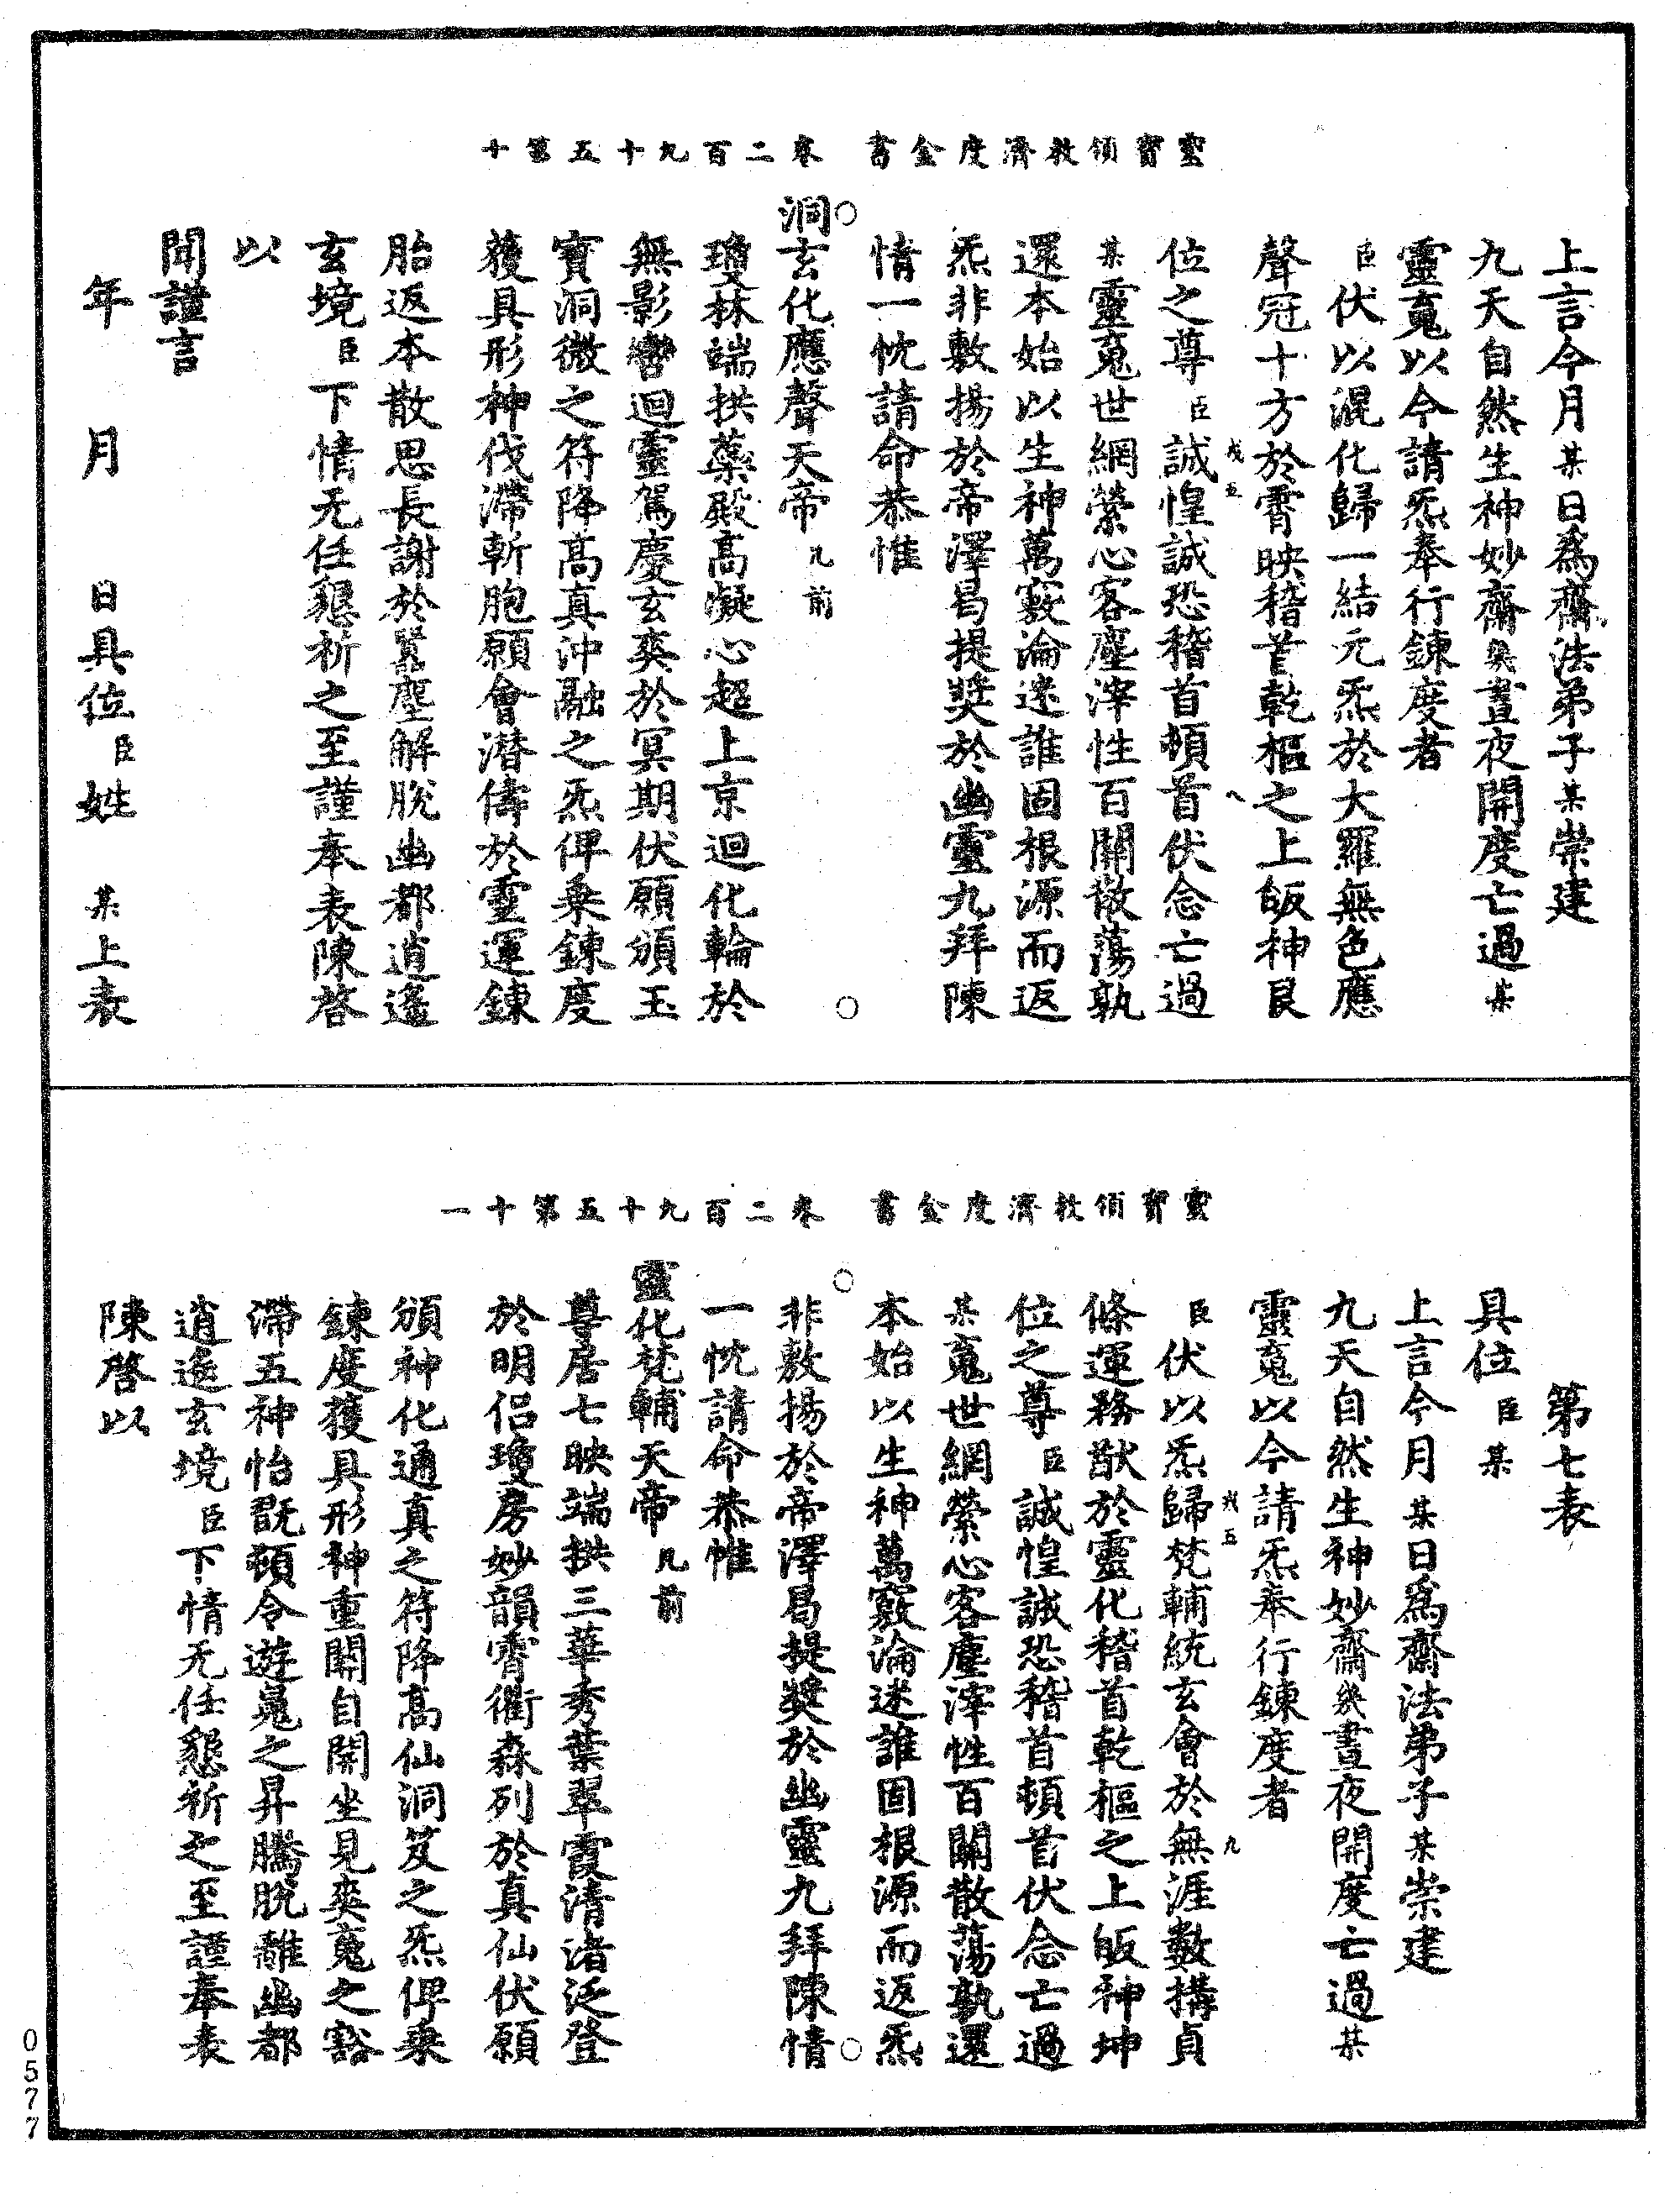 靈寶領教濟度金書 卷二百九十五第十
上言今月某日爲齋法弟子某崇建
九天自然生神妙齋幾晝夜開度亡過某
靈䰟以今請炁奉行鍊度者
臣伏以混化歸一結元炁於大羅無色應
聲冠十方於霄映稽首乾樞之上皈神艮
位之尊臣誠惶誠恐稽首頓首伏念亡過
某靈䰟世網縈心客塵滓性百關散蕩孰
還本始以生神萬竅淪迷誰固根源而返
炁非敷揚於帝澤曷提獎於幽靈九拜陳
情一忱請命恭惟
洞玄化應聲天帝凡前
瓊林端拱蘂殿高凝心超上京迴化輪於
無影轡迴靈駕慶玄爽於冥期伏願頒玉
寶洞微之符降高真沖融之炁俾乘鍊度
獲具形神伐滯斬胞願會潛偉於靈運鍊
胎返本散思長謝於囂塵解脫幽都逍遙
玄境臣下情无任懇祈之至謹奉表陳啓
以
聞謹言
年 月 日具位臣姓 某上表
戎五
八
靈寶領教濟度金書 卷二百九十五第十一
第七表
具位臣某
上言今月某日爲齋法弟子某崇建
九天自然生神妙齋幾晝夜開度亡過某
靈䰟以今請炁奉行鍊度者
臣伏以炁歸梵輔統玄會於無涯數搆貞
條運務猷於靈化稽首乾樞之上皈神坤
位之尊臣誠惶誠恐稽首頓首伏念亡過
某䰟世網縈心客塵滓性百關散蕩孰還
本始以生神萬竅淪迷誰固根源而返炁
非敷揚於帝澤曷提獎於幽靈九拜陳情
一忱請命恭惟
靈化梵輔天帝凡前
尊居七映端拱三華秀葉翠霞清渚泛登
於明侶瓊房妙韻霄衢森列於真仙伏願
頒神化通真之符降高仙洞笈之炁俾乘
鍊度獲具形神重關自開坐見爽䰟之豁
滯五神怡翫頓令遊晁之昇騰脫離幽都
逍遙玄境臣下情无任懇祈之至謹奉表
陳啓以
戎五
九
0577